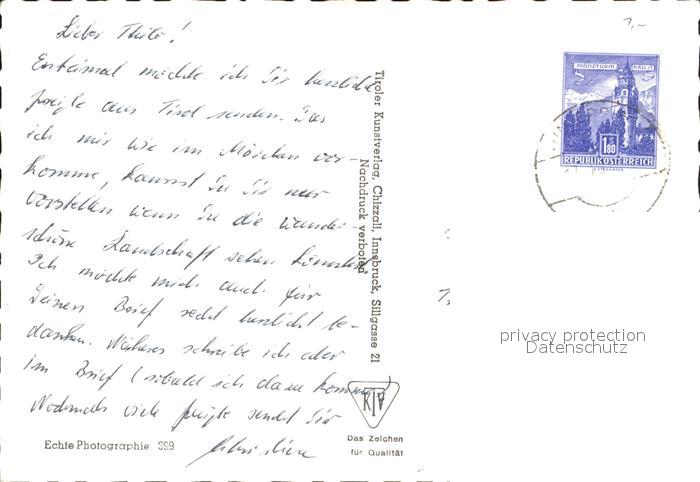 Lieber Thilo!
Ersteinmal möchte ich Dir herzliche
Grüße aus Tirol senden. Daß
ich mir wie im Märchen vor-
komme, kannst Du Dir nur
vorstellen wenn Du die wunder-
schöne Landschaft sehen könntest.
Ich möchte mich auch für
Deinen Brief recht herzlich be-
danken. Näheres schreibe ich aber
im Brief (sobald ich dazu komme)
Nochmals viele Grüße sendet Dir
Christine
Echte Photographie 399
Tiroler Kunstverlag, Chizzali, Innsbruck, Sillgasse 21
Nachdruck verboten
KTV
Das Zeichen
für Qualität
7,-
MÜNZTURM HALL I. T.
S 1.80
REPUBLIK ÖSTERREICH
privacy protection
Datenschutz